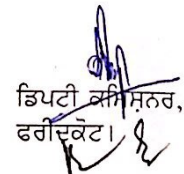 ਡਿਪਟੀ ਕਮਿਸ਼ਨਰ,
ਫਰੀਦਕੋਟ।